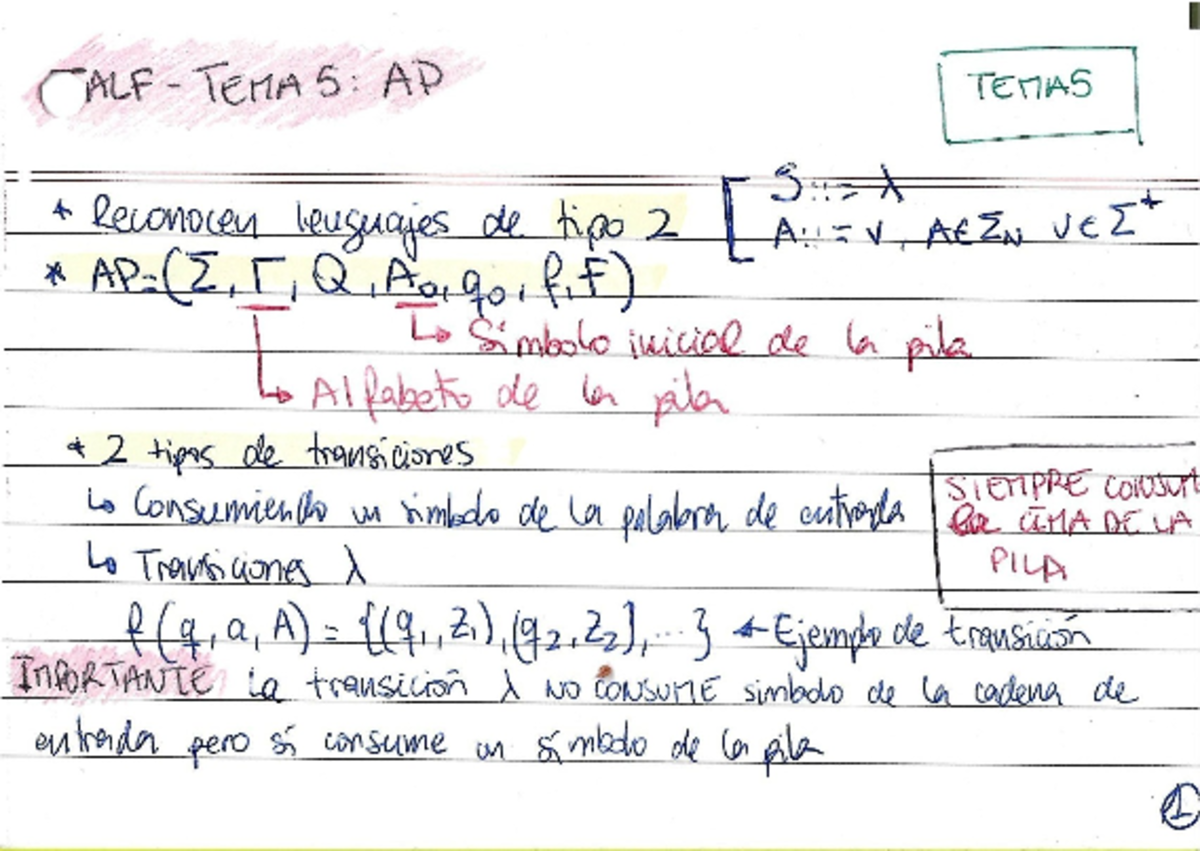 TALF - TEMA 5: AP
TEMA5
* Reconocen lenguajes de tipo 2 [ S::= λ
A::= v, A∈Σ_N v∈Σ*
* AP=(Σ, Γ, Q, A₀, q₀, f, F)
↳ Símbolo inicial de la pila
↳ Alfabeto de la pila
* 2 tipos de transiciones
↳ Consumiendo un simbolo de la palabra de entrada
↳ Transiciones λ
SIEMPRE CONSUM
la CIMA DE LA
PILA
f(q, a, A) = {(q₁, Z₁), (q₂, Z₂), ... } ← Ejemplo de transición
IMPORTANTE La transición λ NO CONSUME simbolo de la cadena de
entrada pero sí consume un símbolo de la pila
1